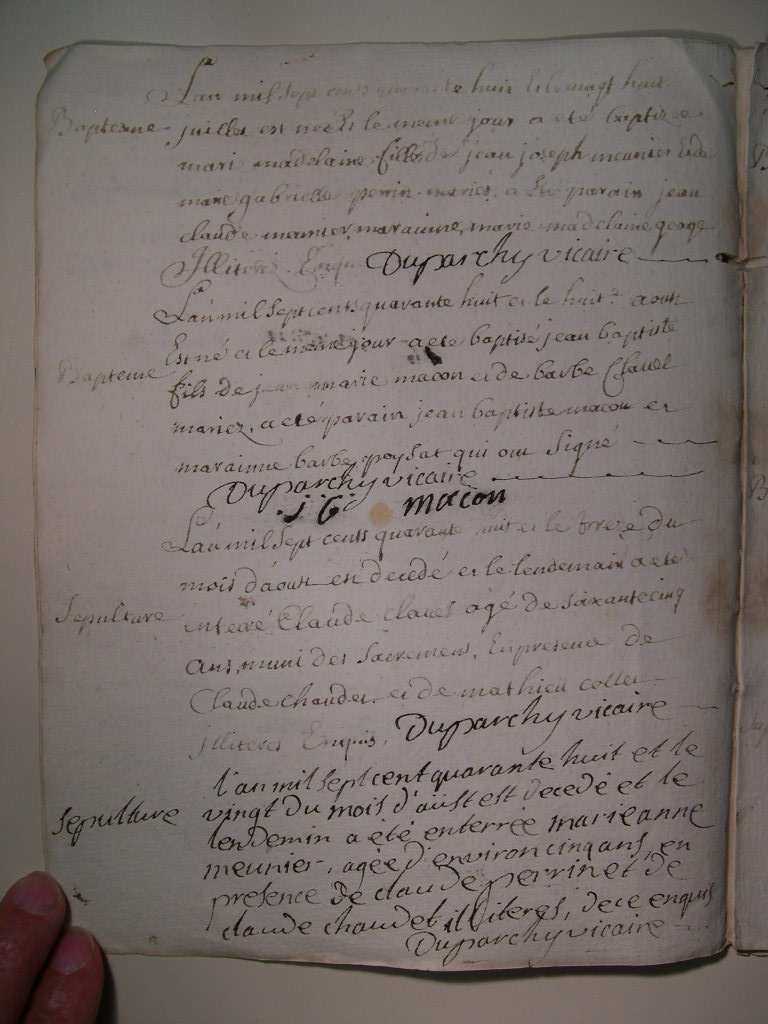 Bapteme
L'an mil sept cents quarante huit et le vingt huit
juillet est née et le meme jour a eté baptizée
mari madelaine fille de jean joseph meunier et de
marie gabrielle perrin mariés, a eté parain jean
claude meunier, marainne, marie madelaine george
Illiterés Enquis Duparchy vicaire
Bapteme
L'an mil sept cents quarante huit et le huit aoust
Est né et le meme jour a eté baptisé jean baptiste
fils de jean marie macon et de barbe Clavel
mariez, a eté parain jean baptiste macon et
marainne barbe peysat qui ont signé
Duparchy vicaire
j b macon
Sepulture
L'an mil sept cents quarante huit et le treze du
mois d'aoust est decedé et le lendemain a eté
interré Claude clavel agé de soixante cinq
ans, muni des sacremens, En presence de
Claude chaudet et de mathieu collet
jlliterés Enquis, Duparchy vicaire
sepulture
l'an mil sept cent quarante huit et le
vingt du mois d'aüst est decedé et le
lendemin a été enterrée marie anne
meunier, agée d'environ cinq ans, en
presence de claude perrin et de
claude chaudet illiteres, de ce enquis
Duparchy vicaire